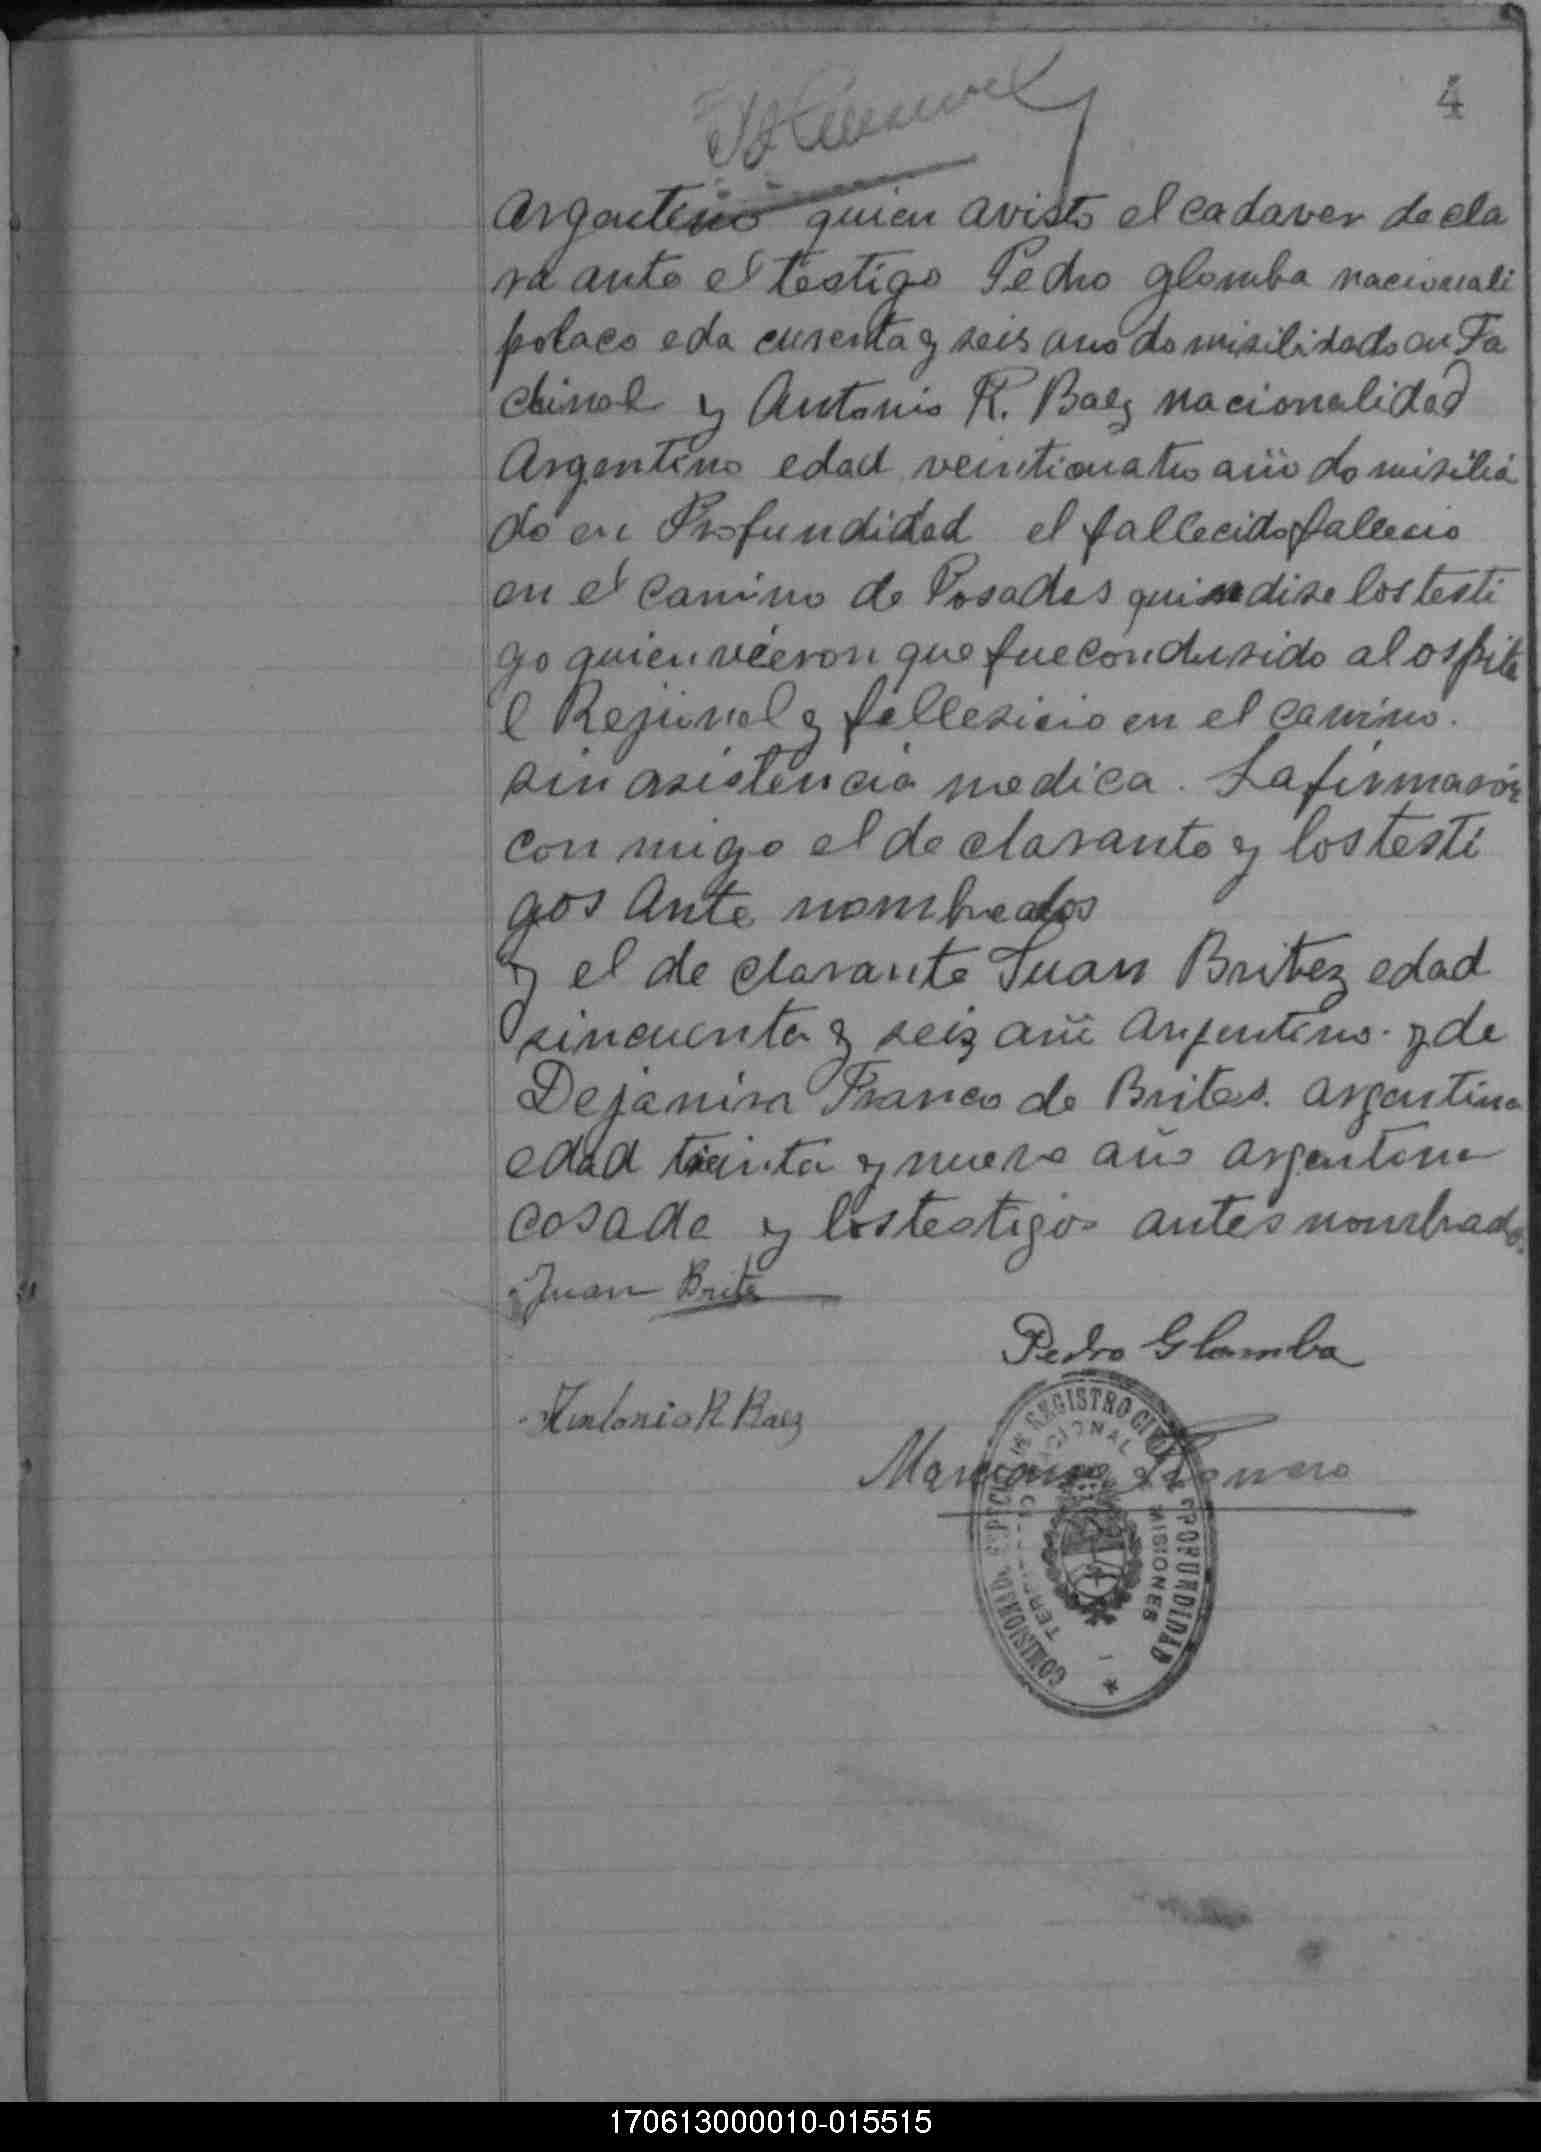 4
Argentino quien avisto el cadaver decla
ra ante el testigo Pedro Glomba nacionali
polaco eda curenta y seis ano domisilidado en Fa
chinal y Antonio R. Baez nacionalidad
Argentino edad veinticuatro año domisilia
do en Profundidad el fallecido fallecio
en el camino de Posadas quien dise los testi
go quien vieron que fue condusido al ospita
l Rejional y fallesicio en el camino.
sin asistencia medica. La firmaron
con migo el declarante y los testi
gos ante nombrados
y el declarante Juan Britez edad
sincuenta y seiz añ Argentino. y de
Dejanira Franco de Brites. argentina
edad trainta y nueve año argentina
casada y los testigos antes nombrados.
Juan Brite
Pedro Glomba
Antonio R Baez
REGISTRO CIVIL DE PROFUNDIDAD
NACIONAL DE MISIONES
170613000010-015515